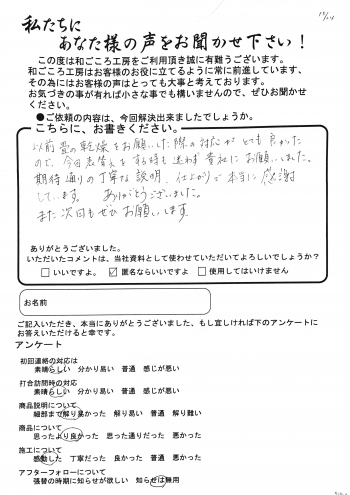 私たちに
あなた様の声をお聞かせ下さい！
この度は和ごころ工房をご利用頂き誠に有難うございます。
和ごころ工房はお客様のお役に立てるように常に前進しています、
その為にはお客様の声はとっても大事と考えております。
お気づきの事が有れば小さな事でも構いませんので、ぜひお聞かせ
ください。
●ご依頼の内容は、今回解決出来ましたでしょうか。
こちらに、お書きください。
以前畳の乾燥をお願いした際の対応がとても良かった
ので、今回表替えをする時も迷わず貴社にお願いしました。
期待通りの丁寧な説明、仕上がりで本当に感謝
しています。 ありがとうございました。
また次回もぜひお願いします。
ありがとうございました。
いただいたコメントは、当社資料として使わせていただいてよろしいでしょうか？
□いいですよ。 ☑匿名ならいいですよ □使用してはいけません
お名前
ご記入いただき、本当にありがとうございました、もし宜しければ下のアンケートに
お答えいただけると幸です。
アンケート
初回連絡の対応は
素晴らしい 分かり易い 普通 感じが悪い
打合訪問時の対応
素晴らしい 分かり易い 普通 感じが悪い
商品説明について
細部まで解り易かった 解り易い 普通 解り難い
商品について
思ったより良かった 思った通りだった 悪かった
施工について
感動した 丁寧だった 良かった 普通 悪かった
アフターフォローについて
張替の時期に知らせが欲しい 知らせは無用